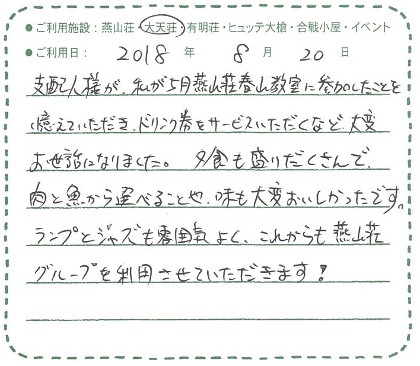 ●ご利用施設：燕山荘・大天荘・有明荘・ヒュッテ大槍・合戦小屋・イベント
●ご利用日： 2018 年 8 月 20 日
支配人様が、私が5月燕山荘春山教室に参加したことを
憶えていただき、ドリンク券をサービスいただくなど、大変
お世話になりました。 夕食も盛りだくさんで、
肉と魚から選べることや、味も大変おいしかったです。
ランプとジャズも雰囲気よく、これからも燕山荘
グループを利用させていただきます！